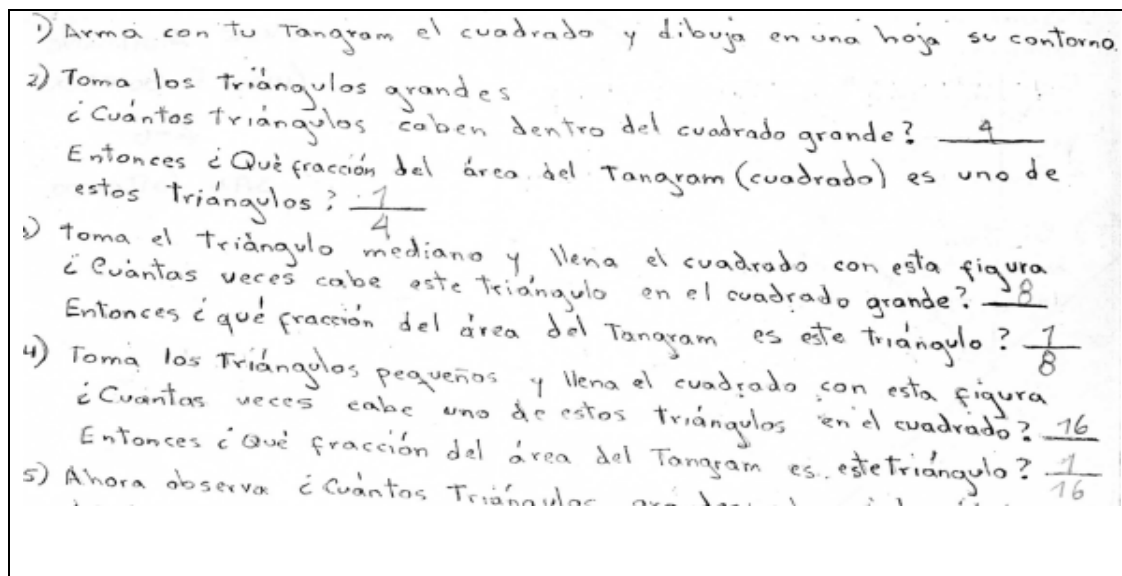 1) Arma con tu Tangram el cuadrado y dibuja en una hoja su contorno.
2) Toma los triángulos grandes
¿Cuántos triángulos caben dentro del cuadrado grande? 4
Entonces ¿Qué fracción del área del Tangram (cuadrado) es uno de
estos triángulos? 1/4
) toma el triángulo mediano y llena el cuadrado con esta figura
¿Cuántas veces cabe este triángulo en el cuadrado grande? 8
Entonces ¿qué fracción del área del Tangram es este triángulo? 1/8
4) Toma los Triángulos pequeños y llena el cuadrado con esta figura
¿Cuantas veces cabe uno de estos triángulos en el cuadrado? 16
Entonces ¿Qué fracción del área del Tangram es este triángulo? 1/16
5) Ahora observa ¿Cuántos Triángulos